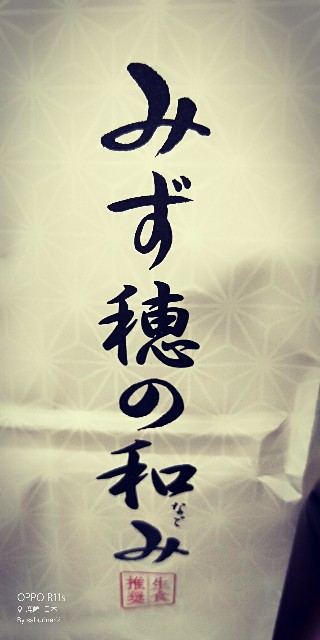 みず穂の和み
など
生食
推奨
OPPO R11s